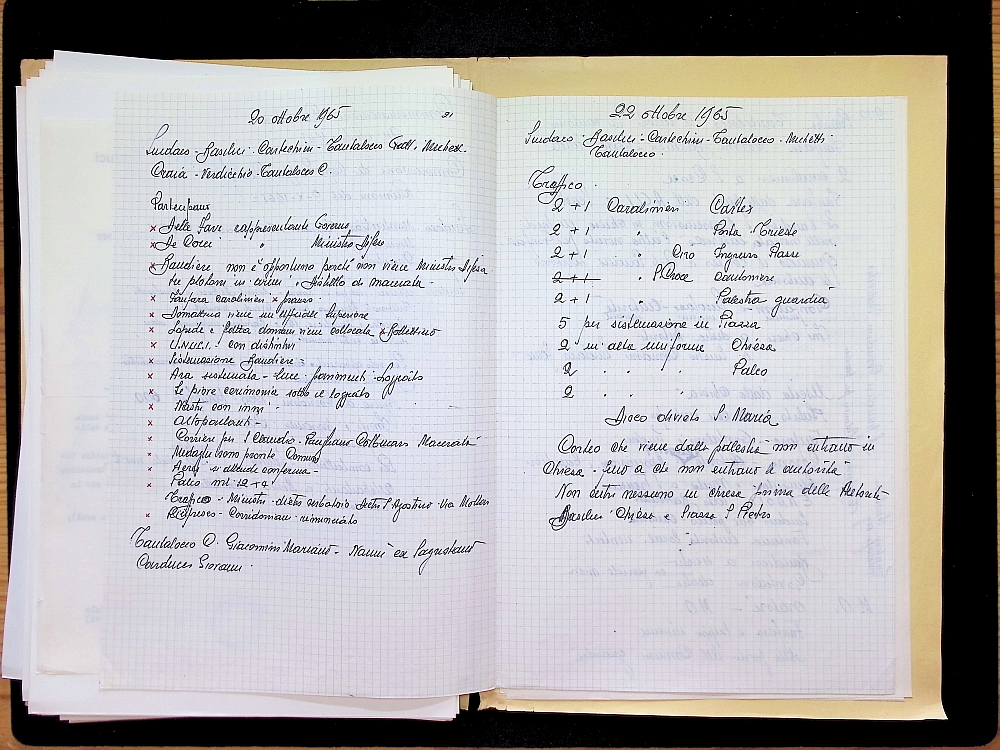 20 ottobre 1965
21
Sindaco - Basilici - Cartechini - Tantalocco Gott. Michett.
Craia - Verdicchio - Tantalocco C.
Partecipano
x Delle Fave rappresentante Governo
x De Cocci " Ministro Difesa
x Bandiere non è opportuno perché non viene Ministro Difesa
tre plotoni in armi. Distretto di Macerata -
x Fanfara carabinieri x pranzo -
x Domattina viene un ufficiale Superiore
x Lapide e scritta domani viene collocata x
x U.N.U.C.I. con distintivi
x Sistemazione Bandiere =
x Ara sistemata - luce - Loggiato
x Se piove cerimonia sotto il loggiato
x Nastri con inni -
x Altoparlanti -
x Corriere per S. Claudio - Macerata
x Medaglie sono pronte
x Aerei si attende conferma -
x Palco mt. 12 x 4
Traffico - Ministri - dietro S. Agostino Via
x Corridoniani rinunciato
Tantalocco O. Giacomini Mariano - Nanni ex
Conduces Giovanni.
22 ottobre 1965
Sindaco - Basilici - Cartechini - Tantalocco - Michetti
Tantalocco.
Traffico.
2 + 1 Carabinieri
2 + 1 " Porta Trieste
2 + 1 " Ingresso Paese
2 + 1 " P. Croce Cantoniere
2 + 1 " Palestra guardia
5 per sistemazione in Piazza
2 in alta uniforme Chiesa
2 " " " Palco
2 " " "
Disco divieto S. Maria
Corteo che viene dalla palestra non entrano in
Chiesa - fino a che non entrano le autorità
Non entri nessuno in chiesa prima delle Autorità
Basilici Chiesa e Piazza S. Pietro